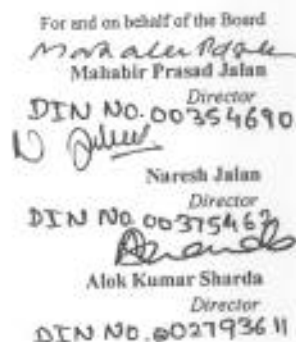 For and on behalf of the Board
Mahabir Prasad Jalan
Director
DIN NO. 00354690
Naresh Jalan
Director
DIN NO. 00375462
Alok Kumar Sharda
Director
DIN NO. 002793611